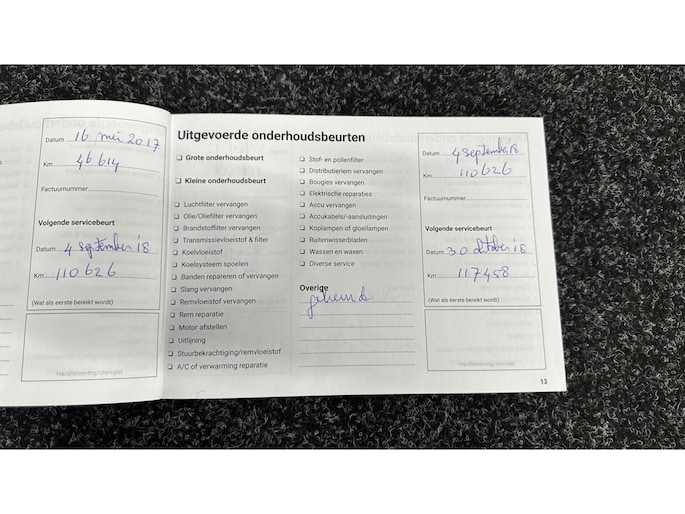 Datum 16 mei 2017
Km 46614
Factuurnummer
Volgende servicebeurt
Datum 4 september 18
Km 110626
(Wat als eerste bereikt wordt)
Handtekening/stempel
Uitgevoerde onderhoudsbeurten
Grote onderhoudsbeurt
Kleine onderhoudsbeurt
Luchtfilter vervangen
Olie/Oliefilter vervangen
Brandstoffilter vervangen
Transmissievloeistof & filter
Koelvloeistof
Koelsysteem spoelen
Banden repareren of vervangen
Slang vervangen
Remvloeistof vervangen
Rem reparatie
Motor afstellen
Uitlijning
Stuurbekrachtiging/remvloeistof
A/C of verwarming reparatie
Stof- en pollenfilter
Distributieriem vervangen
Bougies vervangen
Elektrische reparaties
Accu vervangen
Accukabels/-aansluitingen
Koplampen of gloeilampen
Ruitenwisserbladen
Wassen en waxen
Diverse service
Overige
Datum 4 september 18
Km 110626
Factuurnummer
Volgende servicebeurt
Datum 30 oktober 18
Km 117458
(Wat als eerste bereikt wordt)
Handtekening/stempel
13